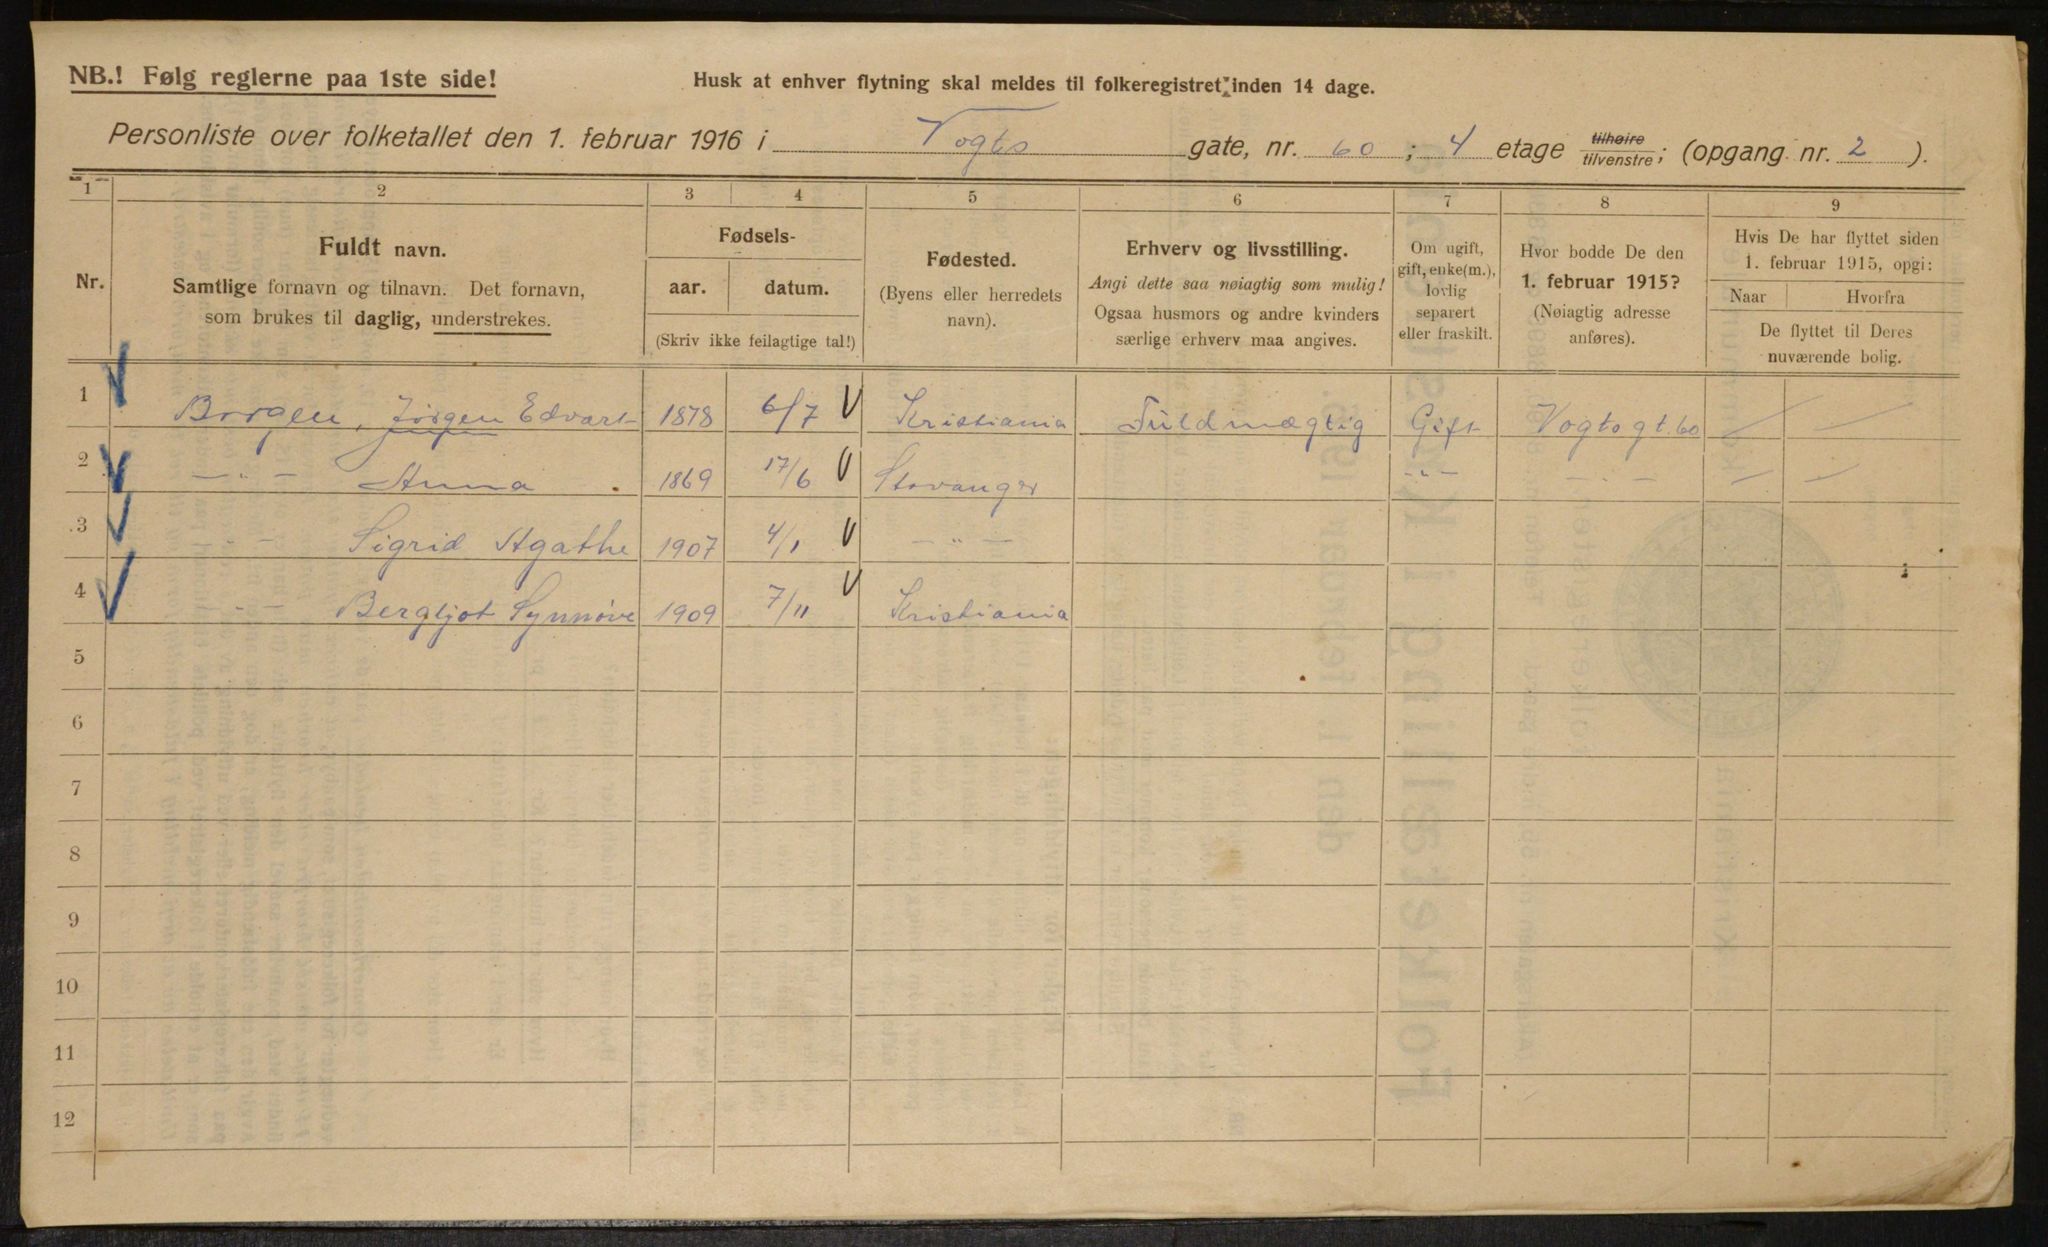 NB.! Følg reglerne paa 1ste side!
Husk at enhver flytning skal meldes til folkeregistret inden 14 dage.
Personliste over folketallet den 1. februar 1916 i Vogts gate, nr. 60; 4 etage tilhøire/tilvenstre; (opgang nr. 2).
1 2 3 4 5 6 7 8 9
Nr.
Fuldt navn.
Samtlige fornavn og tilnavn. Det fornavn,
som brukes til daglig, understrekes.
Fødsels-
aar. datum.
(Skriv ikke feilagtige tal!)
Fødested.
(Byens eller herredets
navn).
Erhverv og livsstilling.
Angi dette saa nøiagtig som mulig!
Ogsaa husmors og andre kvinders
særlige erhverv maa angives.
Om ugift,
gift, enke(m.),
lovlig
separert
eller fraskilt.
Hvor bodde De den
1. februar 1915?
(Nøiagtig adresse
anføres).
Hvis De har flyttet siden
1. februar 1915, opgi:
Naar Hvorfra
De flyttet til Deres
nuværende bolig.
1 Borgen, Jørgen Edvart 1878 6/7 Kristiania Fuldmægtig Gift Vogtsgt. 60 — —
2 — " — Anna 1869 17/6 Stavanger — " — — " — — —
3 — " — Sigrid Agathe 1907 4/1 — " —
4 — " — Bergljot Synnøve 1909 7/11 Kristiania
5
6
7
8
9
10
11
12